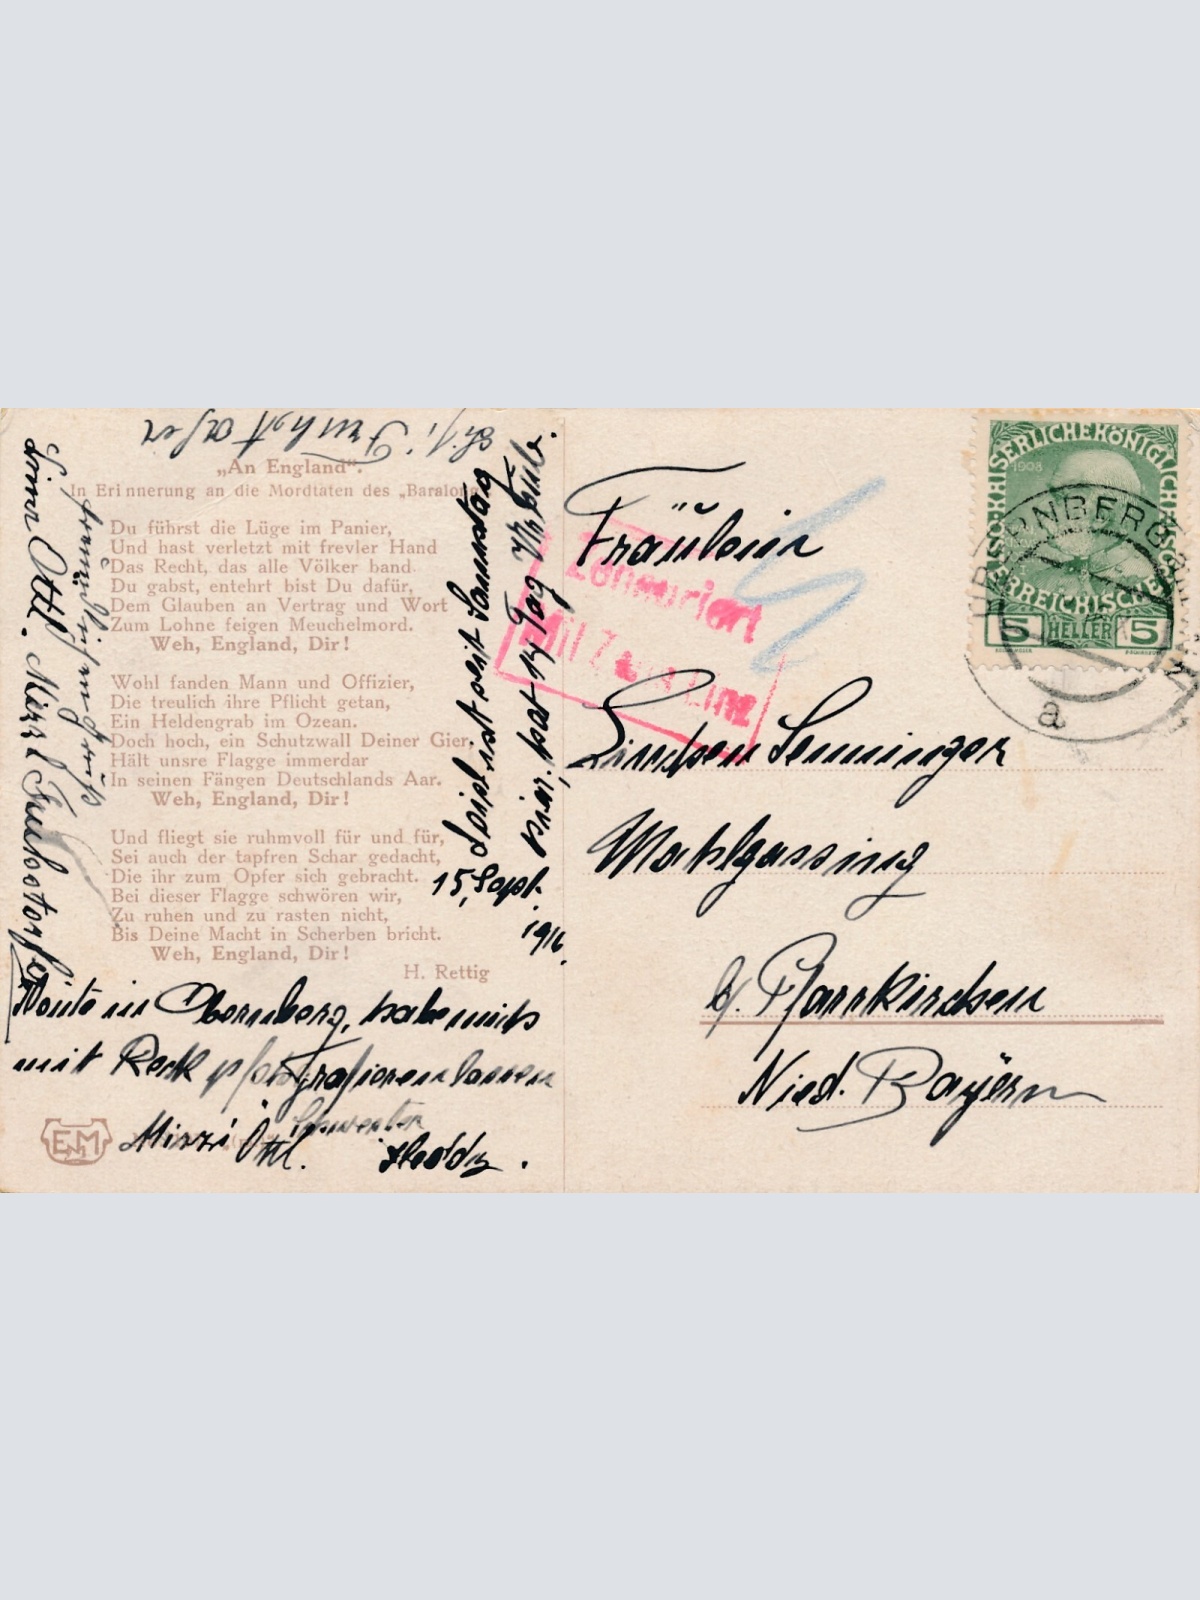 „An England“.
In Erinnerung an die Mordtaten des „Baralong
Du führst die Lüge im Panier,
Und hast verletzt mit frevler Hand
Das Recht, das alle Völker band.
Du gabst, entehrt bist Du dafür,
Dem Glauben an Vertrag und Wort
Zum Lohne feigen Meuchelmord.
Weh, England, Dir!
Wohl fanden Mann und Offizier,
Die treulich ihre Pflicht getan,
Ein Heldengrab im Ozean.
Doch hoch, ein Schutzwall Deiner Gier,
Hält unsre Flagge immerdar
In seinen Fängen Deutschlands Aar.
Weh, England, Dir!
Und fliegt sie ruhmvoll für und für,
Sei auch der tapfren Schar gedacht,
Die ihr zum Opfer sich gebracht.
Bei dieser Flagge schwören wir,
Zu ruhen und zu rasten nicht,
Bis Deine Macht in Scherben bricht.
Weh, England, Dir!
H. Rettig
ist seit Samstag
hier, hat 14 Tag
15. Sept.
1916.
Heute in Obernberg, habe mich
mit Resk photografieren lassen
Mizzi Ottl.
Schwester
Heddy.
Ottl. Mizzl
EMM
Fräulein
Linchen Semminger
Mahlgassing
b/. Pfarrkirchen
Nied. Bayern
Zensuriert
Mil Zens Linz
KAISERLICHEKÖNIGLICHE
ÖSTERREICHISCHE
1908
5 HELLER 5
OBERNBERG
a